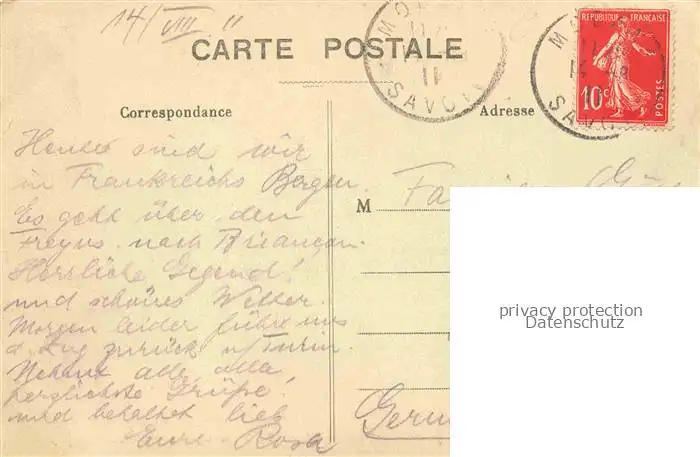 14/VIII 11
CARTE POSTALE
RÉPUBLIQUE FRANÇAISE
10c
POSTES
11
SAVOIE
SAVOIE
Correspondance
Adresse
Heute sind wir
in Frankreichs Bergen.
Es geht über den
Freyus nach Briançon.
Herrliche Gegend!
und schönes Wetter.
Morgen leider führt uns
d. Zug zurück n/Turin.
Nehmt alle alle
herzlichste Grüße!
und behaltet lieb
Eure Rosa
M Familie
privacy protection
Datenschutz